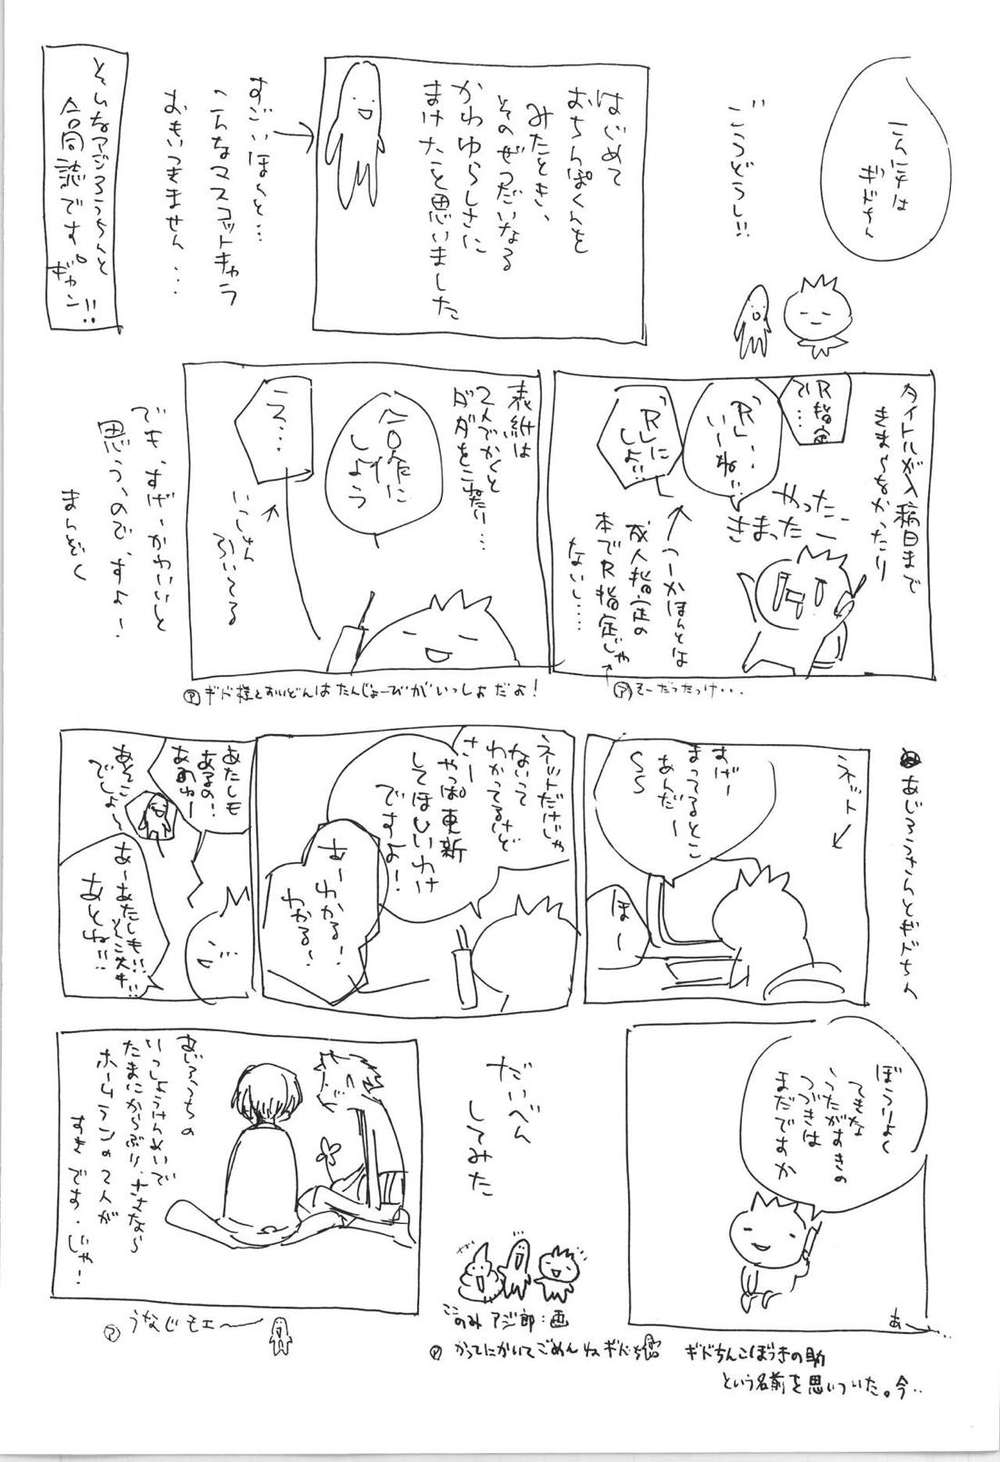 こんにチは
ギドちん
ごうどうし!!
はじめて
おちんぽくんを
みたとき、
そのぜつだいなる
かわゆらしさに
まけたと思いました
すごいほんと…
こんなマスコットキャラ
おもいつきません…
そんなアジろうちんと
合同誌です。ギャン!!
タイトルが入稿日まで
きまらなかったり
R指定
で…
「R」…
いーね…
「R」に
しよ…
やったー
きまった
つーかほんとは
成人指定の
本でR指定じゃ
ないし…
ア そーだったっけ…
表紙は
2人でかくと
ダダをこねたり…
合作に
しよう
え…
いっしゅん
ふいてる
でも、すげーかわいいと
思う、ので、すよー
まんぞく
ア ギド様とすいどんは たんじょーびが いっしょだよ!
あじろうさんとギドちん
ネット
すげー
まってるとこ
あんだー
ほー
ネットだけじゃ
ないって
わかってるけど
さー
やっぱ更新
してほしいわけ
ですよ!
あーわかる!
わかるー
あたしも
あるの!
あそこ
でしょー
あーあたしも…
そこ大好き…
あとね…
ぼうりょく
てきな
うたがすきの
つづきは
まだですか
あー…
だいべん
してみた
ここのみ アジ郎:画
ア かってにかいてごめんねギドち
ギドちんこぼうきの助
という名前を思いついた。今…
あじろうちの
いっしょうけんめいで
たまにからぶり、さよなら
ホームランの2人が
すきです。じゃ!
ア うなじモエ〜